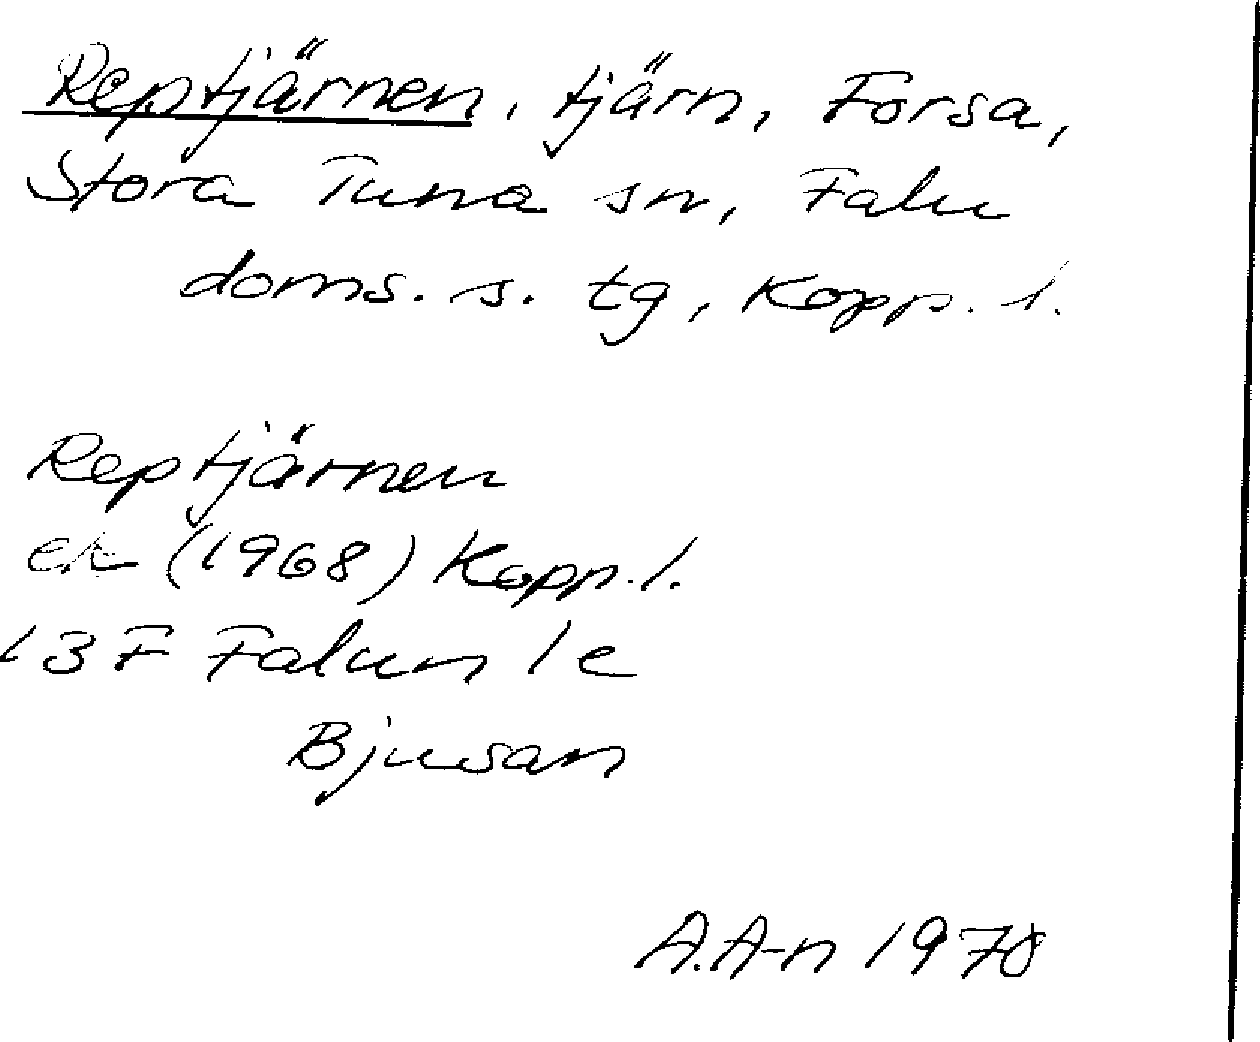 Reptjärnen, tjärn, Forsa,
Stora Tuna sn, Falu
doms. s. tg, Kopp. l.
Reptjärnen
ek (1968) Kopp. l.
13F Falun 1e
Bjusan
A.A-n 1978